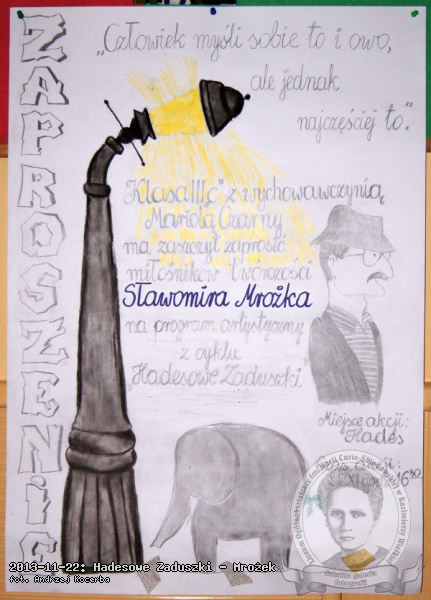 ZAPROSZENIE
„Człowiek myśli sobie to i owo,
ale jednak
najczęściej to."
„Klasa III c" z wychowawczynią
Mariolą Czarny
ma zaszczyt zaprosić
miłośników twórczości
Sławomira Mrożka
na program artystyczny
z cyklu
„Hadesowe Zaduszki"
Miejsce akcji:
Hades
2013-11-22: Hadesowe Zaduszki - Mrożek
fot. Andrzej Kocerba